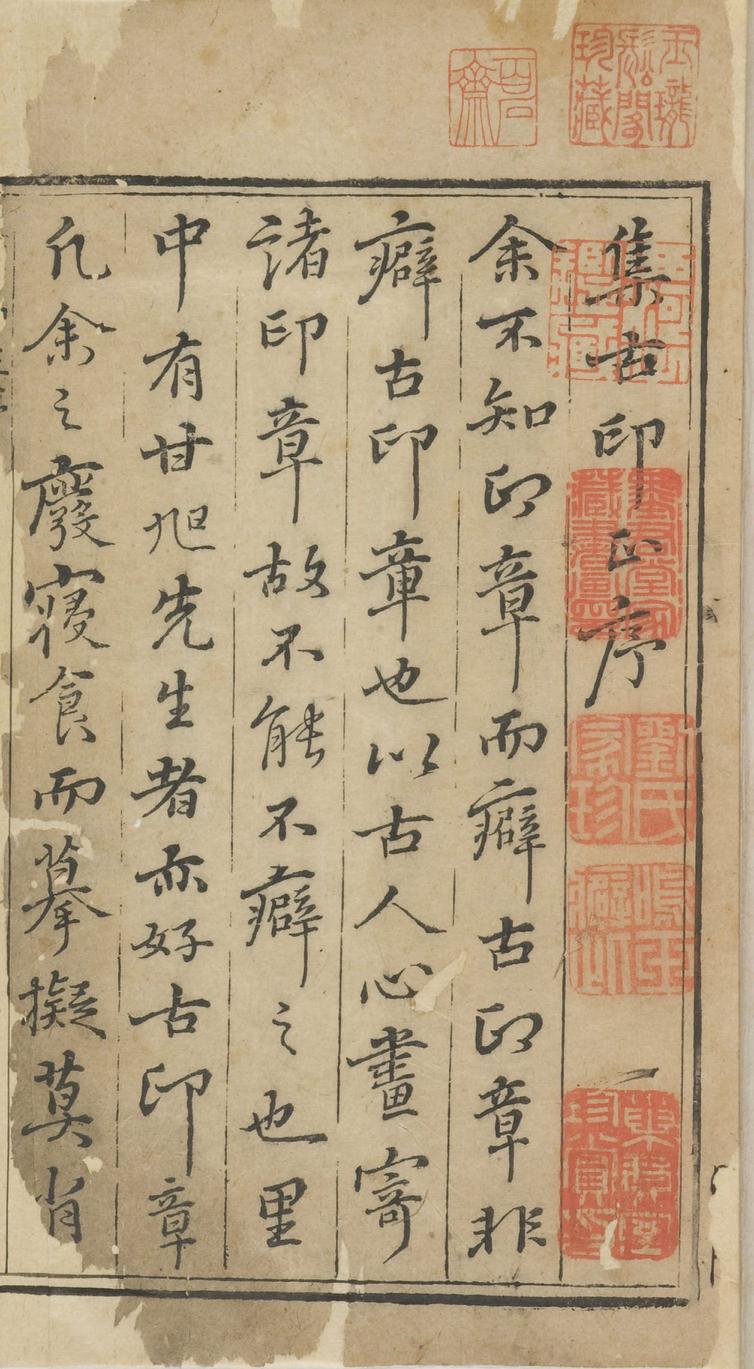 玉瓏鬆閣珍藏
集古印正序
劉氏家珍
余不知印章而癖古印章非
癖古印章也以古人心畫寄
諸印章故不能不癖之也里
中有甘旭先生者亦好古印章
凡余之廢寢食而摹擬莫肖